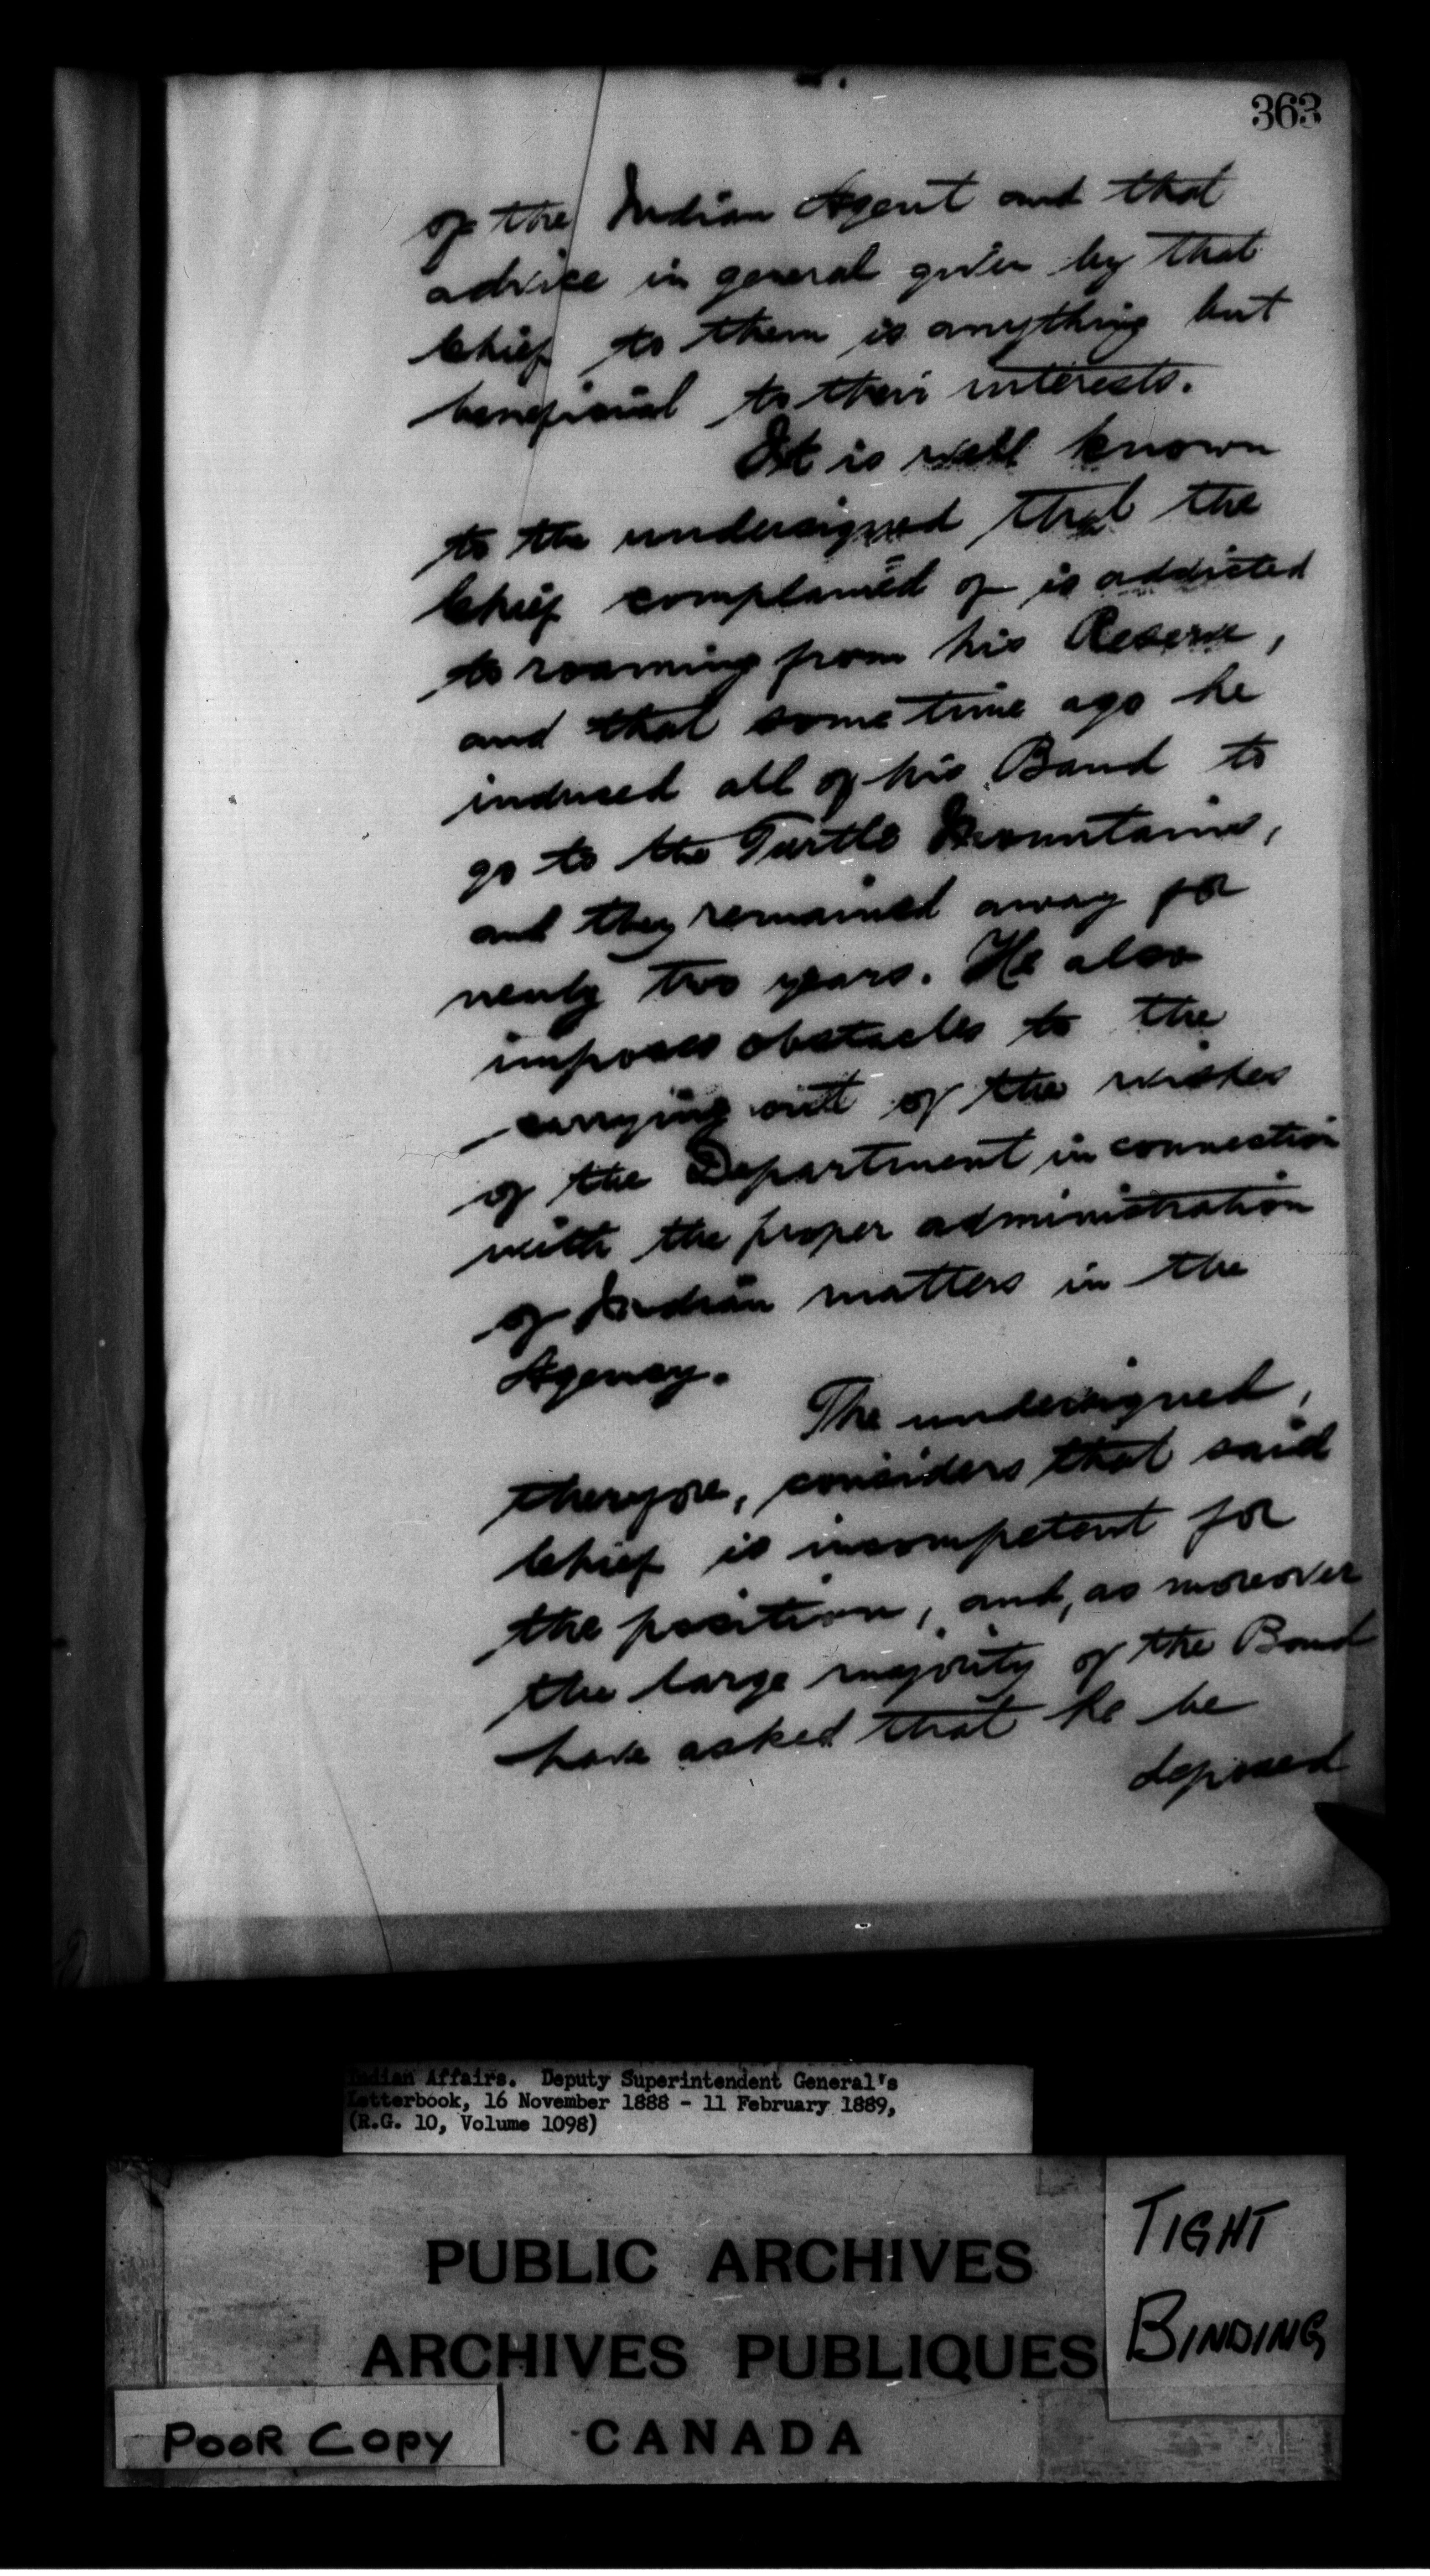 363
of the Indian Agent and that
advice in general given by that
Chief to them is anything but
beneficial to their interests.
It is well known
to the undersigned that the
Chief complained of is addicted
to roaming from his Reserve,
and that some time ago he
induced all of his Band to
go to the Turtle Mountains,
and they remained away for
nearly two years. He also
imposes obstacles to the
carrying out of the wishes
of the Department in connection
with the proper administration
of Indian matters in the
Agency.
The undersigned,
therefore, considers that said
Chief is incompetent for
the position, and, as moreover
the large majority of the Band
have asked that he be
deposed
Indian Affairs. Deputy Superintendent General's
Letterbook, 16 November 1888 - 11 February 1889,
(R.G. 10, Volume 1098)
TIGHT
BINDING
PUBLIC ARCHIVES
ARCHIVES PUBLIQUES
CANADA
POOR COPY